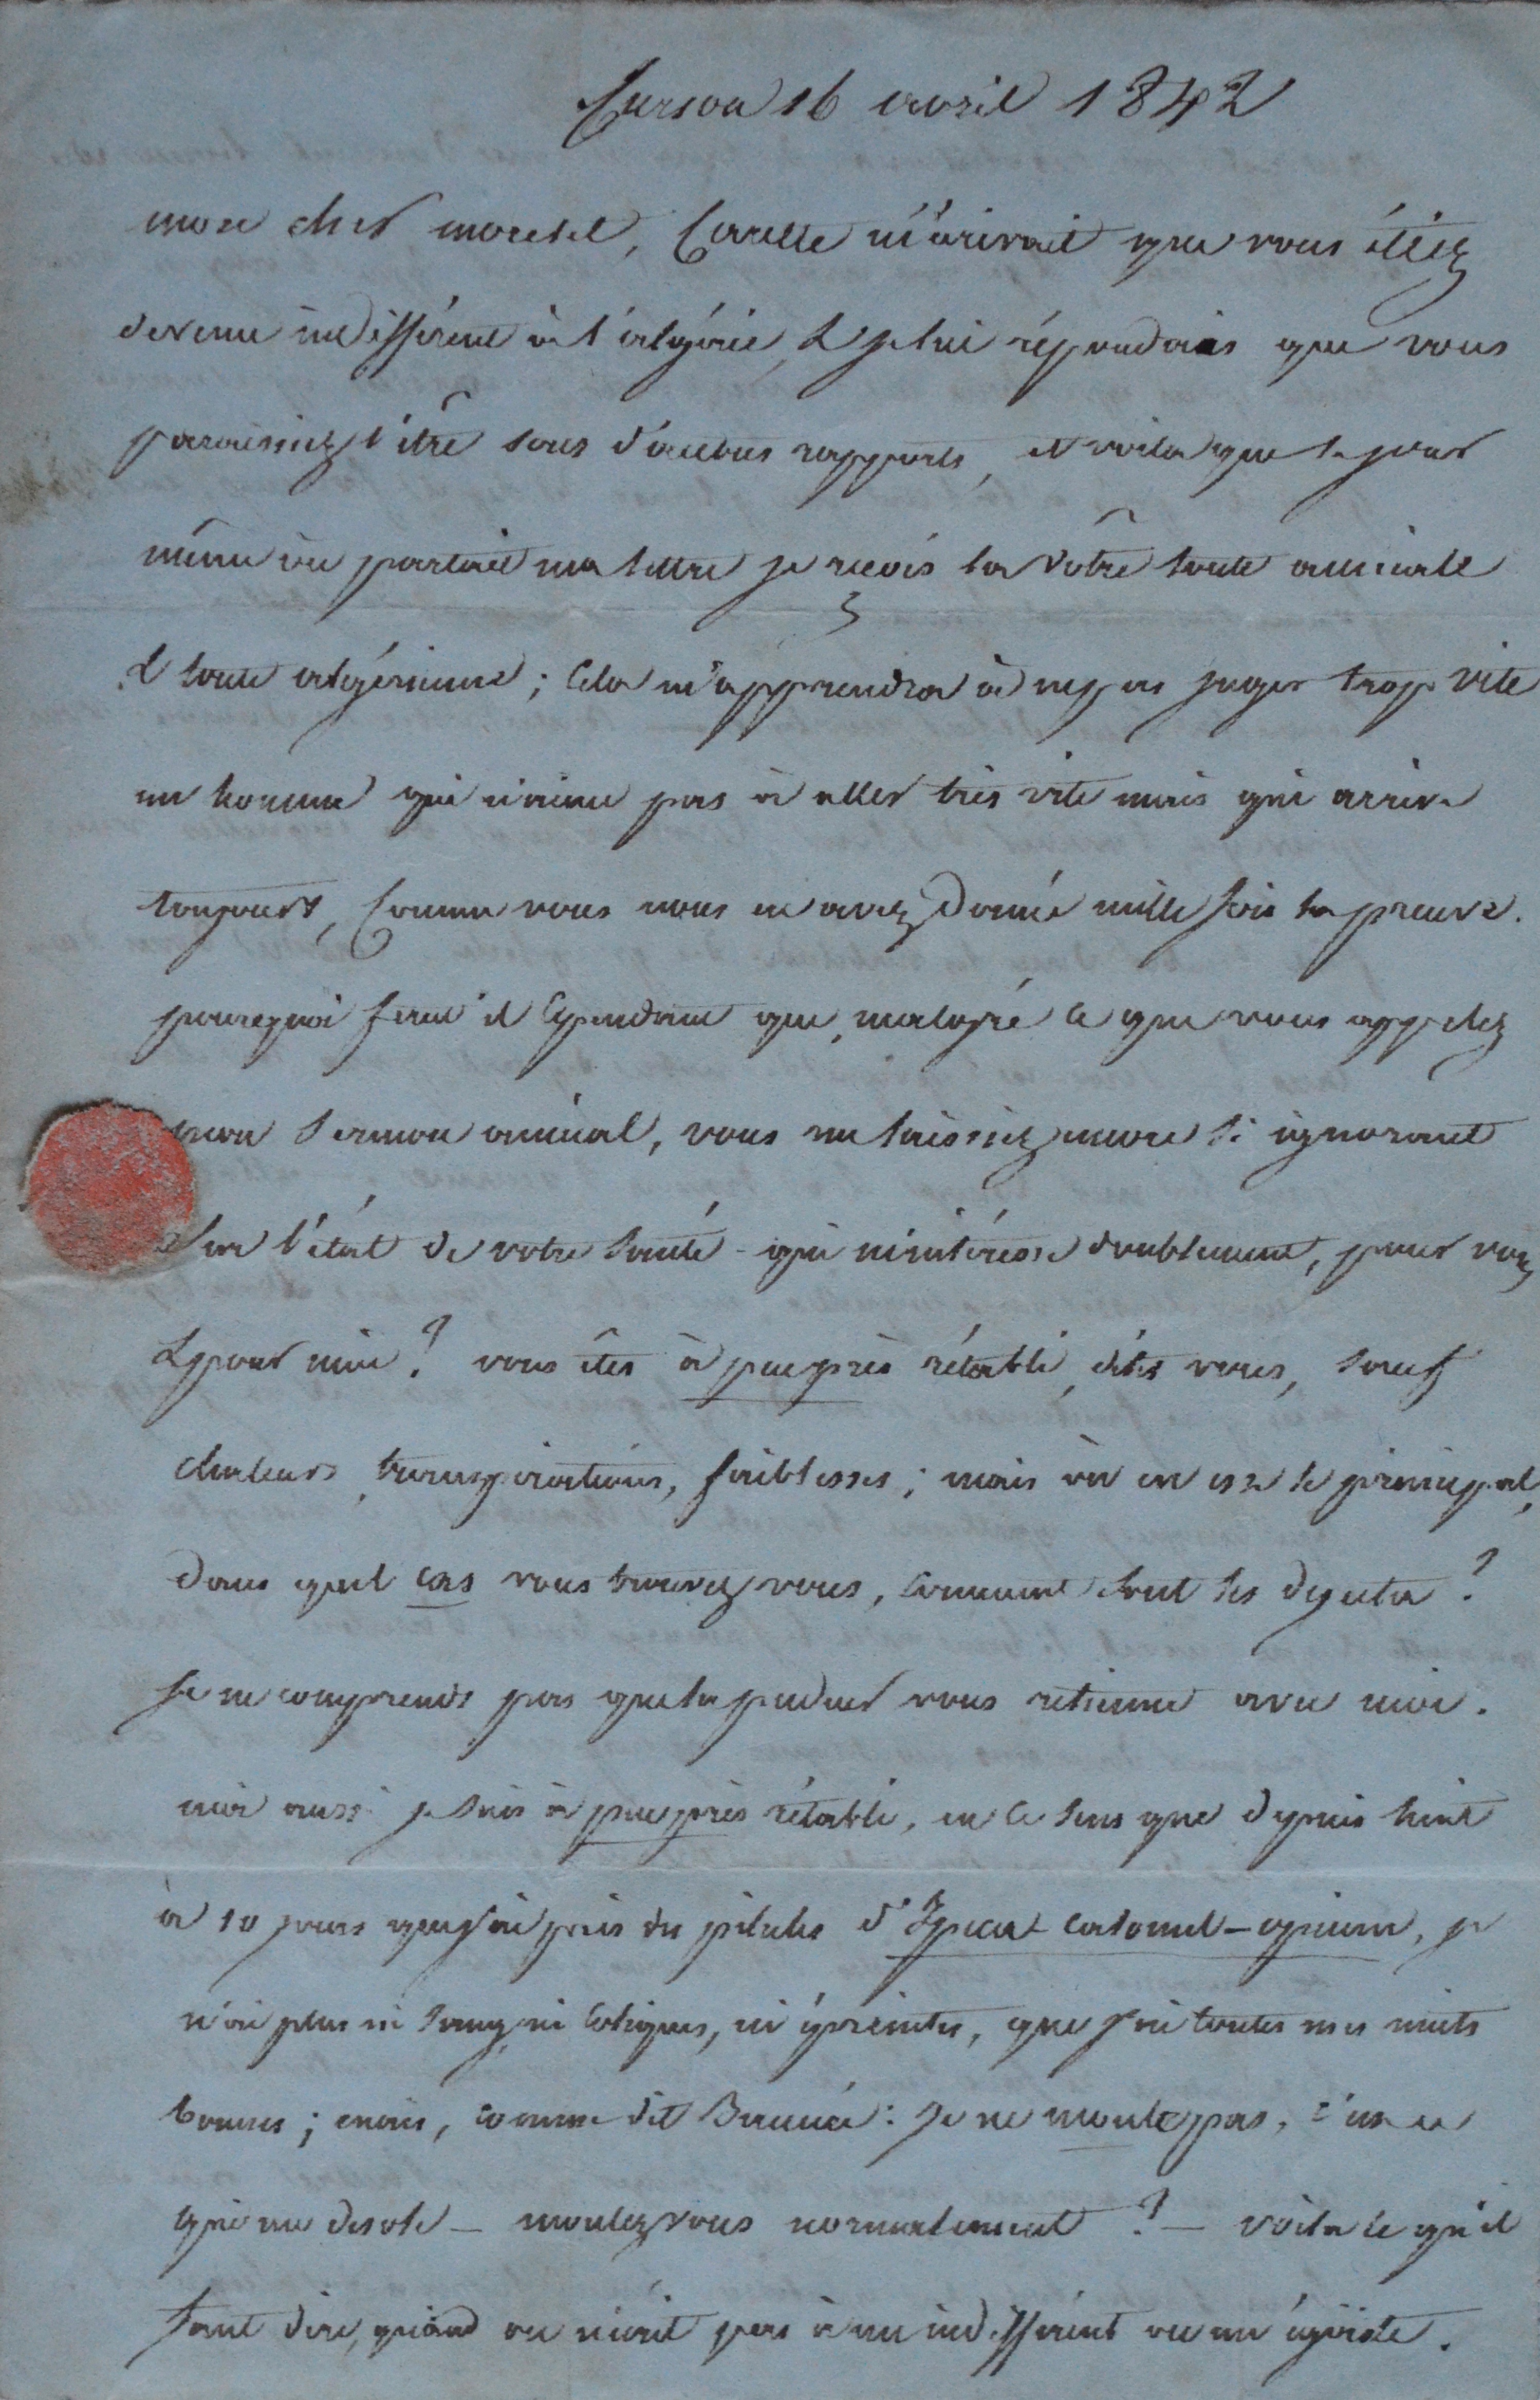 Curson 16 avril 1842
mon cher morelet, Carette m'écrivait que vous étiez
devenu indifférent à l'algérie, & je lui répondais que vous
paraissiez l'être sous d'autres rapports, et voila que le jour
même où partait ma lettre je reçois la vôtre toute amicale
& toute algérienne; Cela m'apprendra à ne pas juger trop vite
un homme qui n'aime pas à aller très vite mais qui arrive
toujours, Comme vous nous en avez donné mille fois la preuve.
pourquoi faut il Cependant que, malgré ce que vous appelez
mon Sermon amical, vous me laissiez encore si ignorant
sur l'état de votre Santé - qui m'intéresse doublement, pour vous
& pour moi? vous êtes à peu près rétabli, dites vous, sauf
chaleurs, transpirations, faiblesses; mais où en est le principal,
dans quel cas vous trouvez vous, comment sont les dejecta?
Je ne comprends pas que la pudeur vous retienne avec moi.
moi aussi je suis à peu près rétabli, en ce sens que depuis huit
à 10 jours que j'ai pris des pilules d'Ipeca-calomel-opium, je
n'ai plus ni sang, ni coliques, ni épreintes, que j'ai toutes mes nuits
bonnes; mais, comme dit : Je ne moule pas, c'est ce
qui me désole - moulez vous normalement? - voila ce qu'il
faut dire, quand on n'écrit pas à un indifférent ou un égoïste.